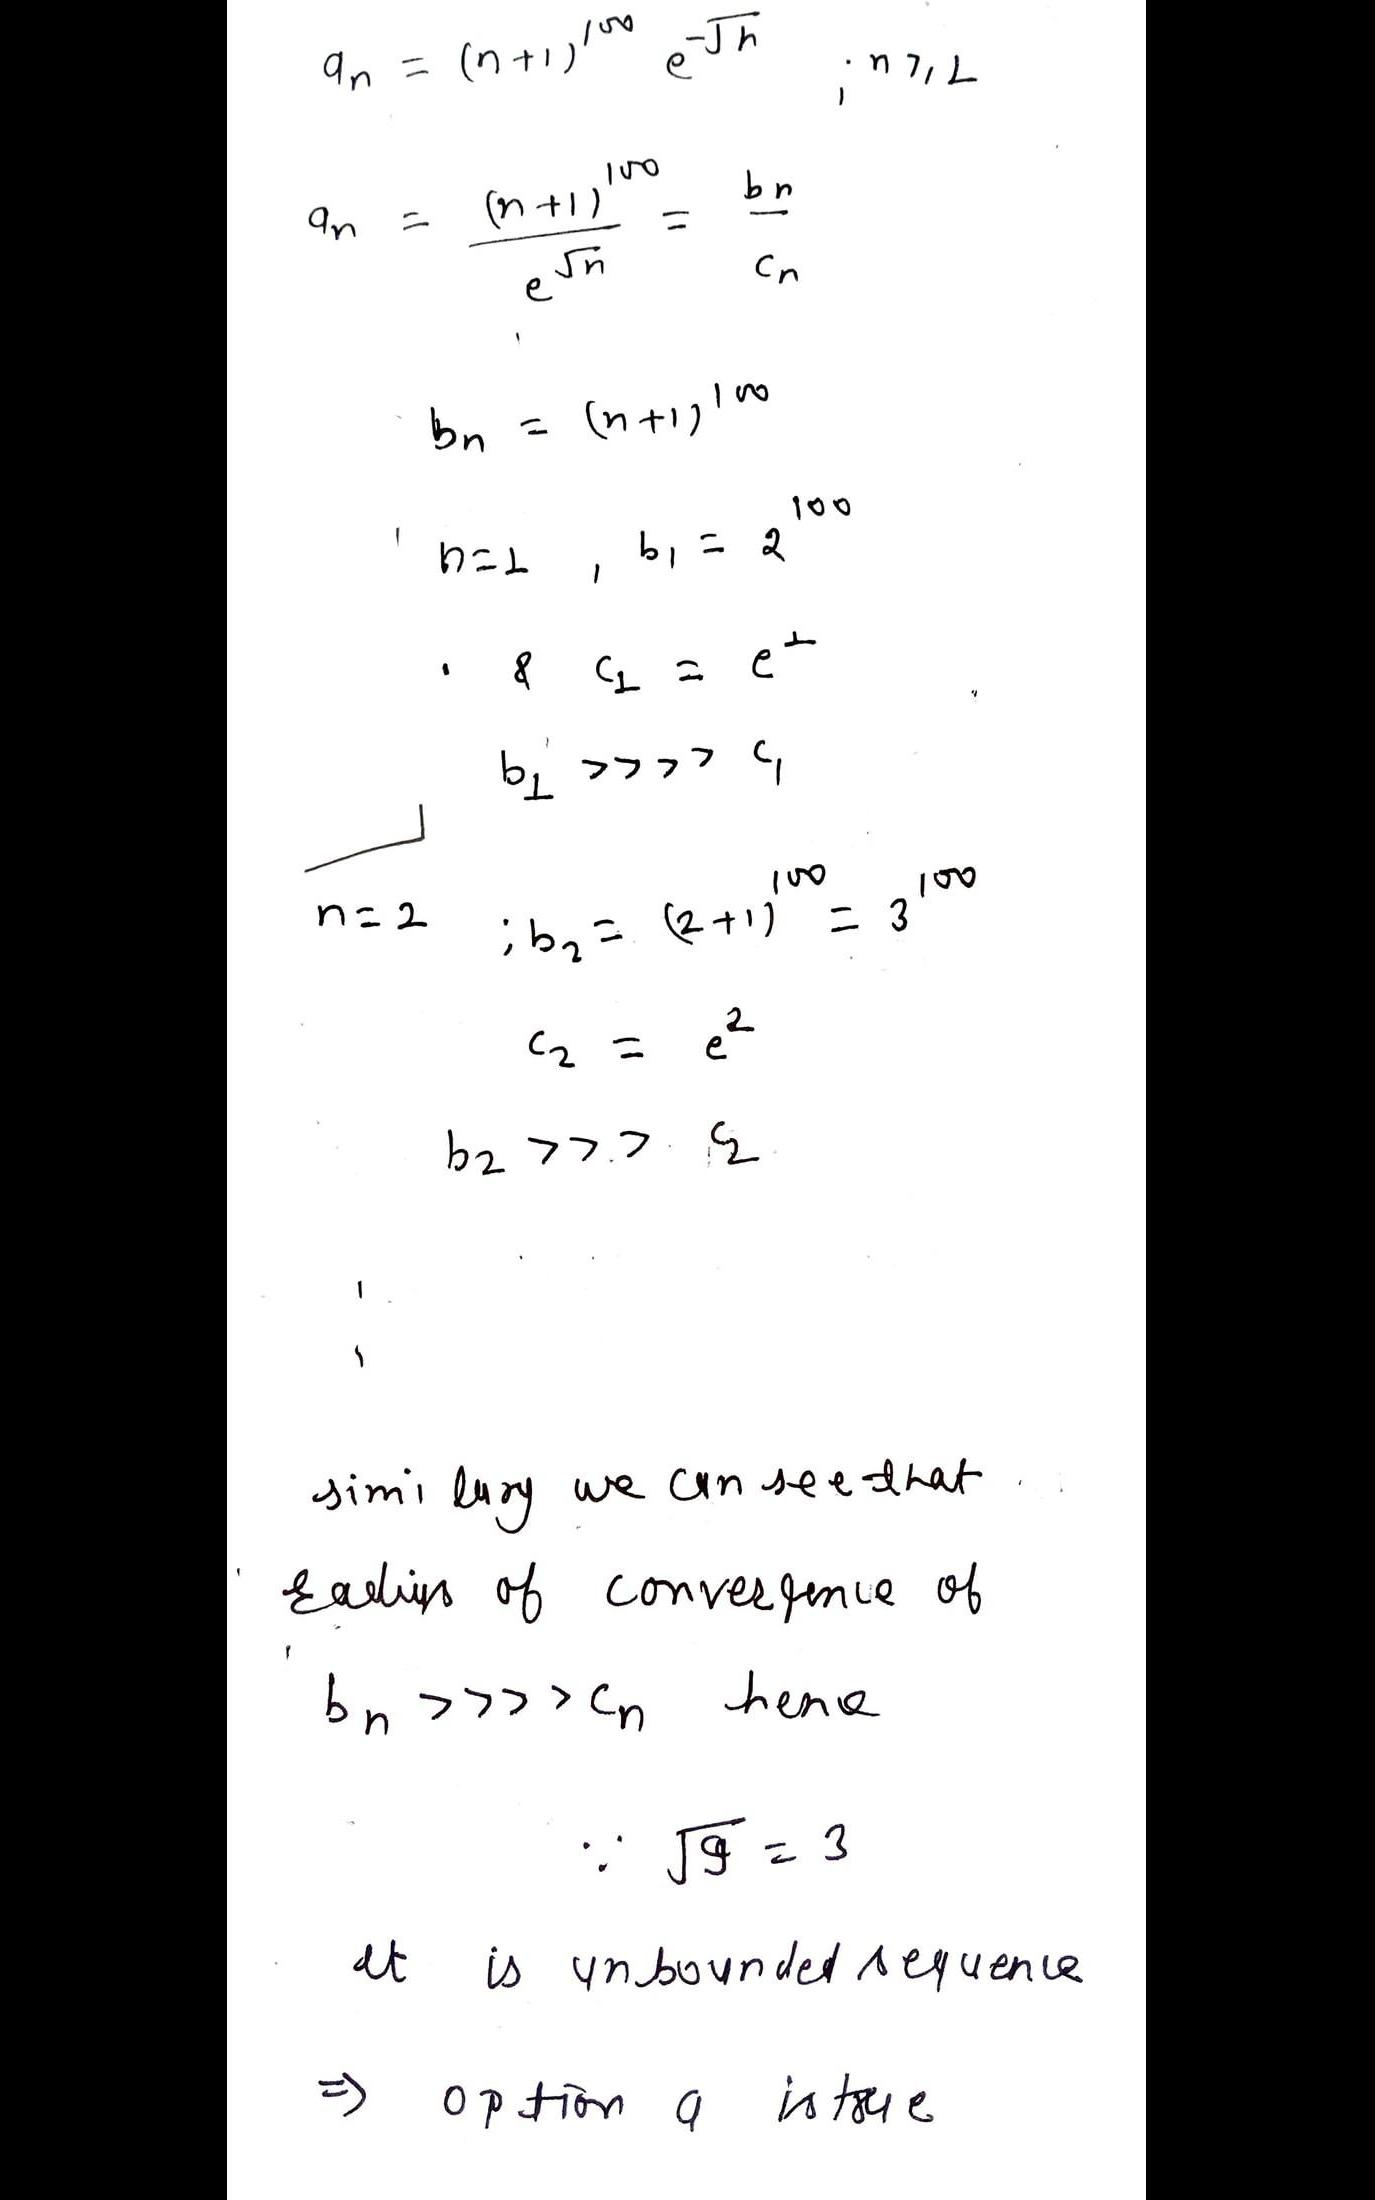 an = (n+1)^100 e^-√n ; n ≥ 1
an = (n+1)^100 / e^√n = bn / cn
bn = (n+1)^100
n=1 , b1 = 2^100
& c1 = e^1
b1 >>>> c1
n=2 ; b2 = (2+1)^100 = 3^100
c2 = e^2
b2 >>> c2
similary we can see that
radius of convergence of
bn >>>> cn hence
∵ √9 = 3
it is unbounded sequence
⇒ option a is true